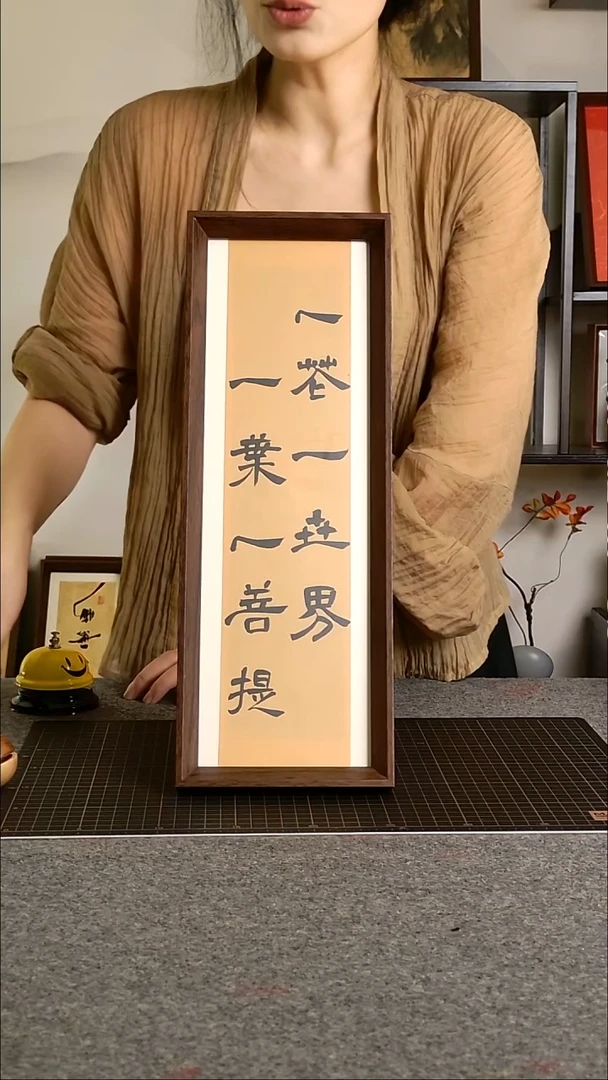 一花一世界
一葉一善提